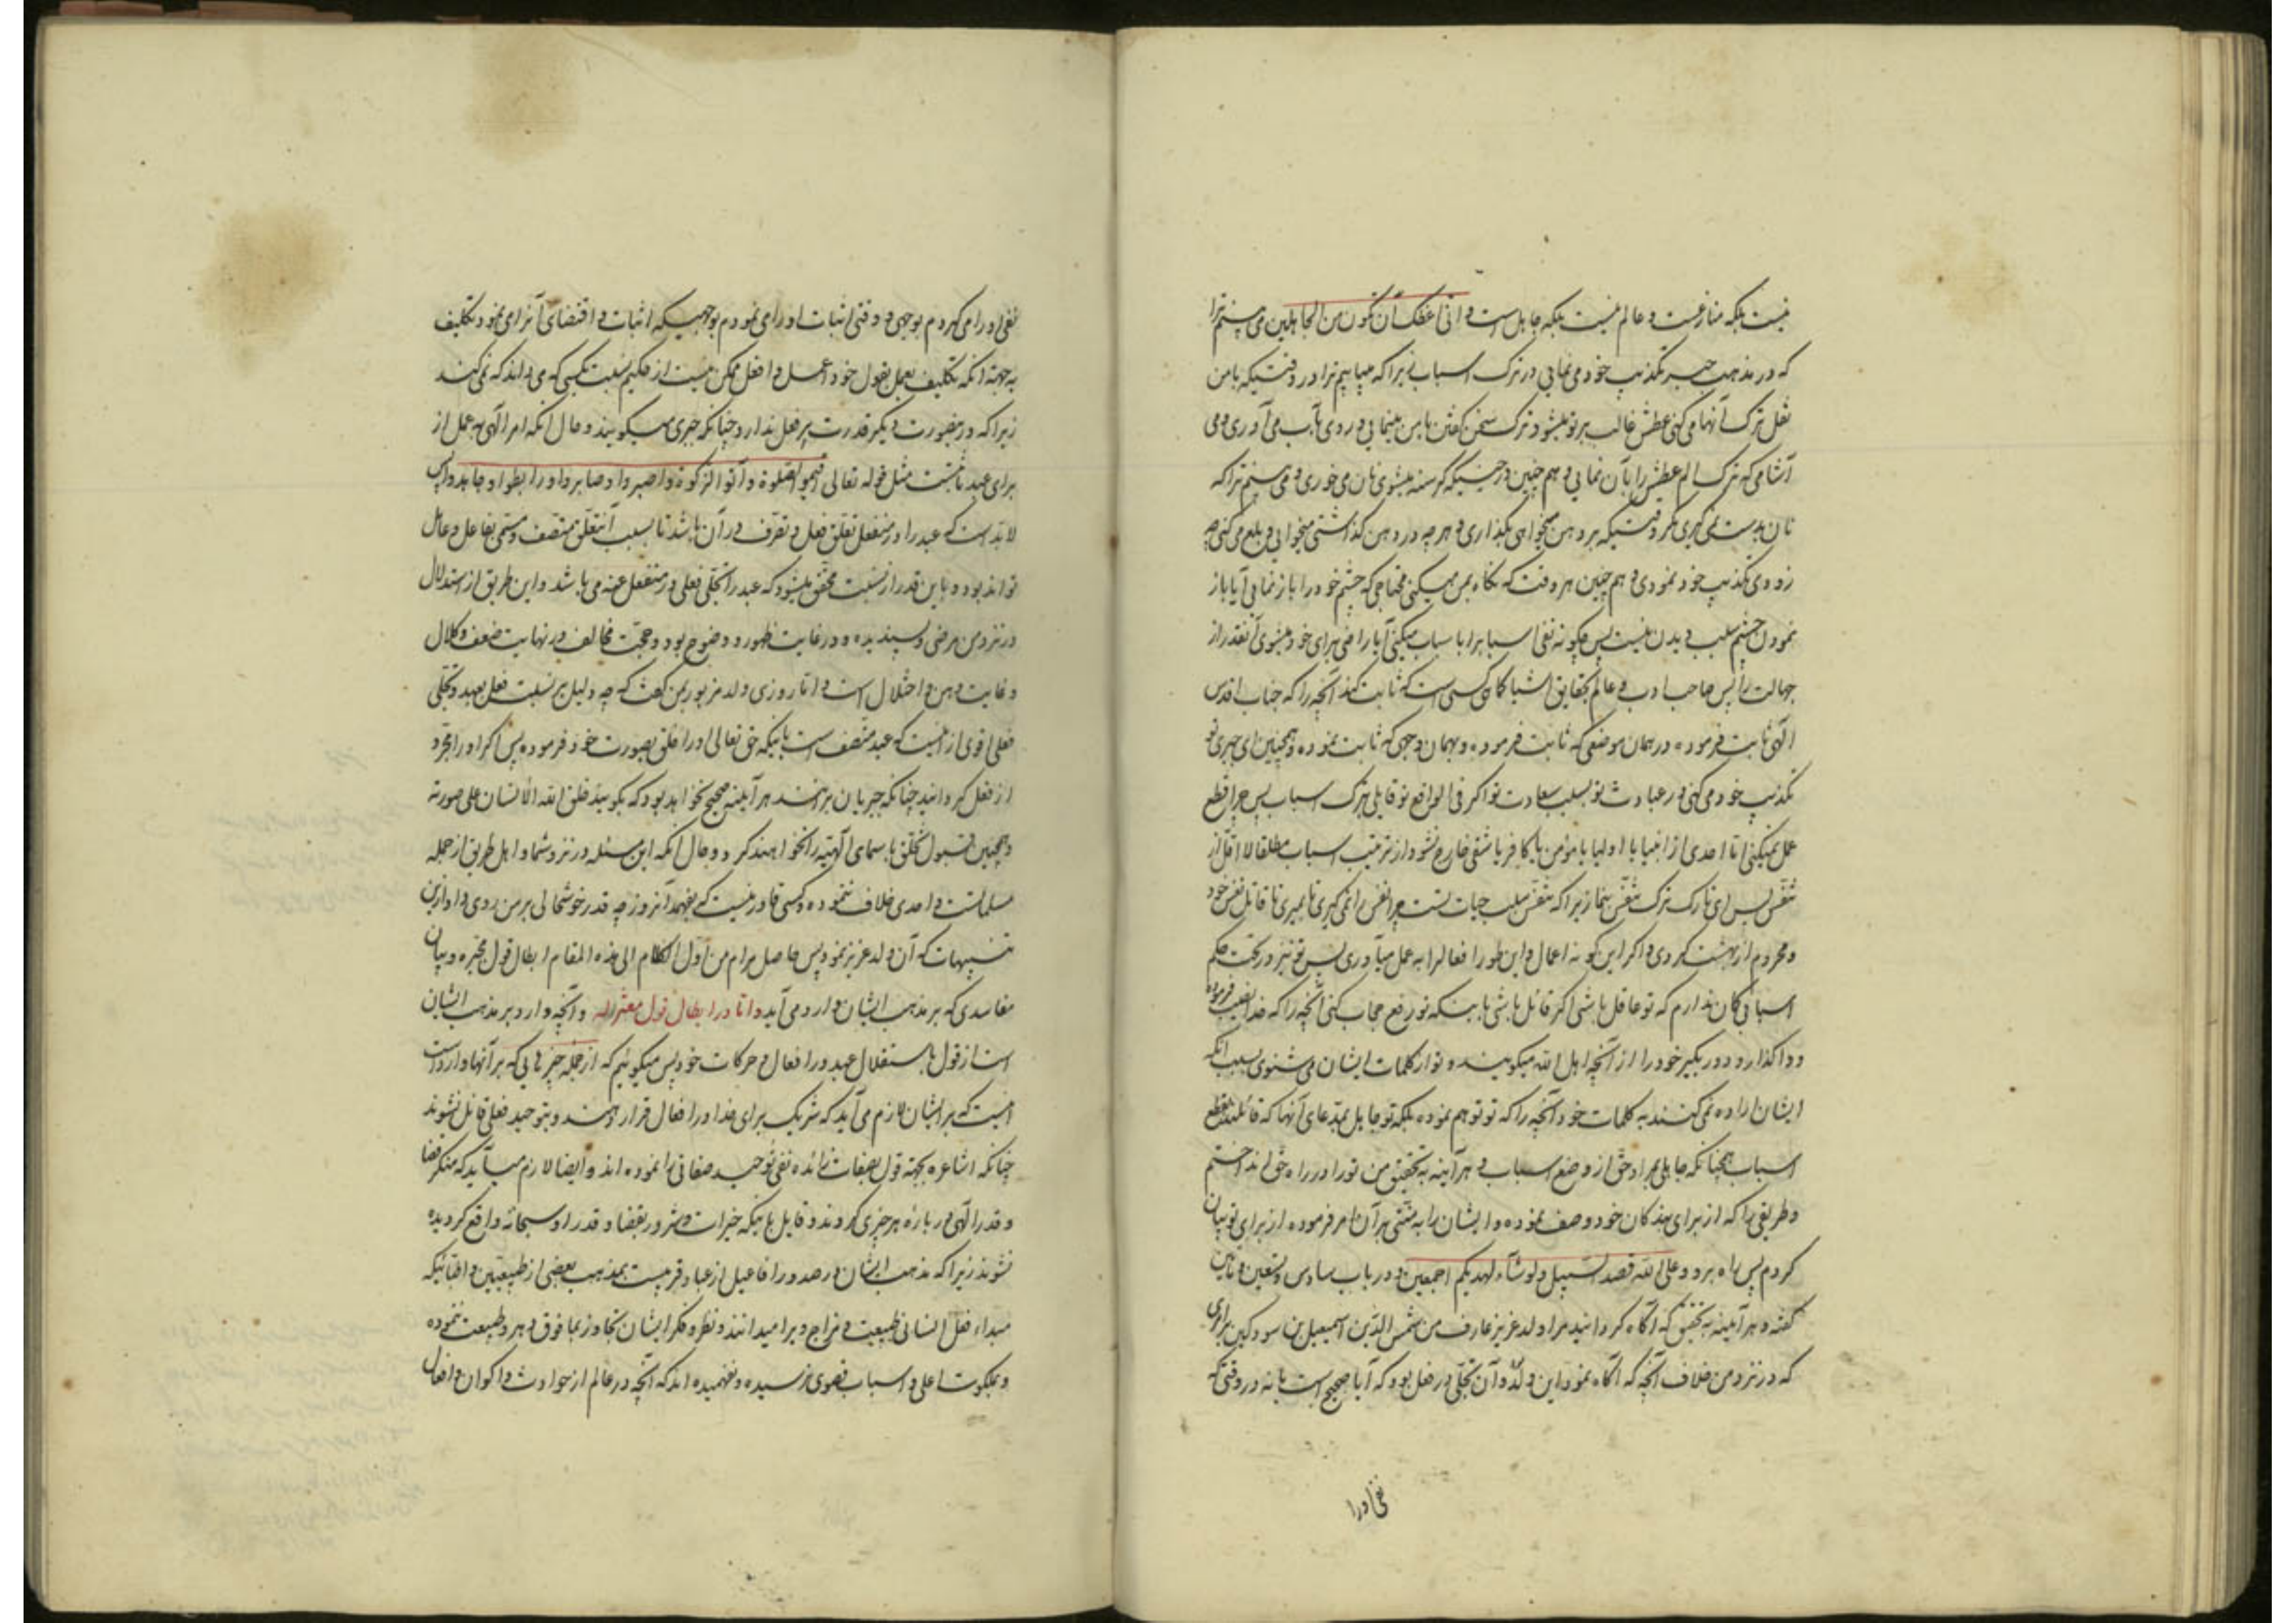 نیست بلکه منازعست و عالم نیست بلکه جاهل است و انی اعظک ان تکون من الجاهلین می بینم ترا
که در مذهب جبر تکذیب خود می نمایی در ترک اسباب زیرا که میابیم ترا در وقتیکه با من
نقل ترک آنها می کنی عطش غالب بر تو میشود ترک سخن گفتن با من مینمایی و روی بآب می آوری و می
آشامی که ترک الم عطش را بآن نمایی و هم چنین در حینیکه گرسنه میشوی نان می خوری و می بینم ترا که
نان بدست نمی گیری مگر وقتیکه بر دهن میخواهی بگذاری و هر چه در دهن گذاشتی میخوایی و بلع می کنی چه
زودی تکذیب خود نمودی و هم چنین هر وقت که نگاه بمن میکنی محتاجی که چشم خود را باز نمایی آیا باز
نمودن چشم سبب دیدن نیست پس چگونه نفی اسباب را با سباب میکنی آیا راضی برای خود میشوی آنقدر از
جهالت را پس صاحب ادب و عالم بحقایق اشیا کماهی کسی است که ثابت کند آنچه را که جناب اقدس
الهی ثابت فرموده در همان موضعی که ثابت فرموده و بهمان وجهی که ثابت نموده و همچنین ای جبری تو
تکذیب خود می کنی در عبادت تو بسبب سعادت تو اگر فی الواقع تو قایلی بترک اسباب پس چرا قطع
عمل نمیکنی اما احدی از انبیا یا اولیا یا مؤمن یا کافر یا شقی خارج نشود از ترتیب اسباب مطلقا لا اقل از
تنفس پس ای تارک ترک تنفس بنما زیرا که تنفس سبب حیات تست چرا نفس را نمی گیری تا بمیری تا قاتل نفس خود
و محروم از بهشت گردی و اگر این گونه اعمال و این طور افعال را به عمل میآوری پس تو نیز در تحت حکم
اسبابی گمان ندارم که تو عاقل باشی اگر قائل باشی باینکه تو رفع حجاب کنی آنچه را که خدا نصب فرموده
و واگذار و دور بگیر خود را از آنچه اهل الله میگویند و تو از کلمات ایشان می شنوی بسبب آنکه
ایشان اراده نمی کنند به کلمات خود آنچه را که تو توهم نموده بلکه تو جاهل بمدعای آنها که قائلند بقطع
اسباب همچنانکه جاهلی بمراد حق از وضع اسباب و هر آینه به تحقیق من تو را در راه حق انداختم
و طریقی را که از برای بندکان خود وصف نموده و ایشان را به مشی بر آن امر فرموده از برای تو بیان
کردم پس راه برو و علی الله قصد السبیل و لو شاء لهدیکم اجمعین و در باب سادس و تسعین و مأتین
گفته و هر آینه به تحقیق که آگاه گردانید مرا ولد عزیز عارف من شمس الدین اسمعیل بن سودکین برامری
که در نزد من خلاف آنچه که آگاه نمود این ولد و آن تجلی در فعل بود که آیا صحیح است یا نه در وقتی که
نفی او را
نفی او را می کردم بوجهی و وقتی اثبات او را می نمودم بوجهیکه اثبات و اقتضای آنرا می نمود تکلیف
به جهة آنکه تکلیف بعمل بقول خود اعمل و افعل ممکن نیست از حکیم نسبت بکسی که می داند که نمی کند
زیرا که در نیصورت دیگر قدرت بر فعل ندارد چنانکه جبری میگویند و حال آنکه امر الهی به عمل از
برای عبد ثابتست مثل قوله تعالی اقیموا الصلوة و آتوا الزکوة و اصبروا و صابروا و رابطوا و جاهدوا پس
لابد است که عبد را در منفعل تعلق فعل و تصرف در آن باشد تا بسبب آنتعلق متصف و مسمی بفاعل و عامل
تواند بود و باین قدر از نسبت محقق میشود که عبد را تجلی فعلی در منفعل عنه می باشد و این طریق از استدلال
در نزد من مرضی و پسندیده و در غایت ظهور و وضوح بود و حجت مخالف در نهایت ضعف و کلال
و غایت وهن و اختلال است و اما روزی ولد مزبور بمن گفت که چه دلیل بر نسبت فعل بعبد و تجلی
فعلی اقوی از اینست که عبد متصف است باینکه حق تعالی او را خلق بصورت خود فرموده پس اگر او را مجرد
از فعل گردانید چنانکه جبریان برانند هر آینه صحیح نخواهد بود که بگویید خلق الله الانسان علی صورته
و همچنین قبول تخلق باسمای الهیه را نخواهند کرد و حال آنکه این مسئله در نزد شما و اهل طریق از جمله
مسلماتست و احدی خلاف ننموده و کسی قادر نیست که بفهمد آنروز چه قدر خوشحالی بر من روی داد از این
تنبیهات که آن ولد عزیز نمود پس حاصل مرام من اول الکلام الی هذه المقام ابطال قول مجبره و بیان
مفاسدی که بر مذهب ایشان وارد می آید و اما در ابطال قول معتزله و آنچه وارد بر مذهب ایشان
است از قول باستقلال عبد در افعال و حرکات خود پس میگوئیم که از جمله چیزهایی که بر آنها وارد است
اینست که بر ایشان لازم می آید که شریک برای خدا در افعال قرار دهند و بتوحید فعلی قائل نشوند
چنانکه اشاعره بجهة قول بصفات زائده نفی توحید صفاتی را نموده اند و ایضا لازم میآید که منکر قضا
و قدر الهی در باره هر چیزی گردند و قایل باینکه خیرات و شرور بقضا و قدر او سبحانه واقع گردیده
نشوند زیرا که مذهب ایشان در صدور افاعیل از عباد قریبست بمذهب بعضی از طبیعیین و اطبائیکه
مبداء فعل انسانی طبیعت و مزاج و برا میدانند و نظر و فکر ایشان تجاوز بما فوق دهر و طبیعت ننموده
و بملکوت اعلی و اسباب قصوی نرسیده و نفهمیده اند که آنچه در عالم از حوادث و اکوان و افعال